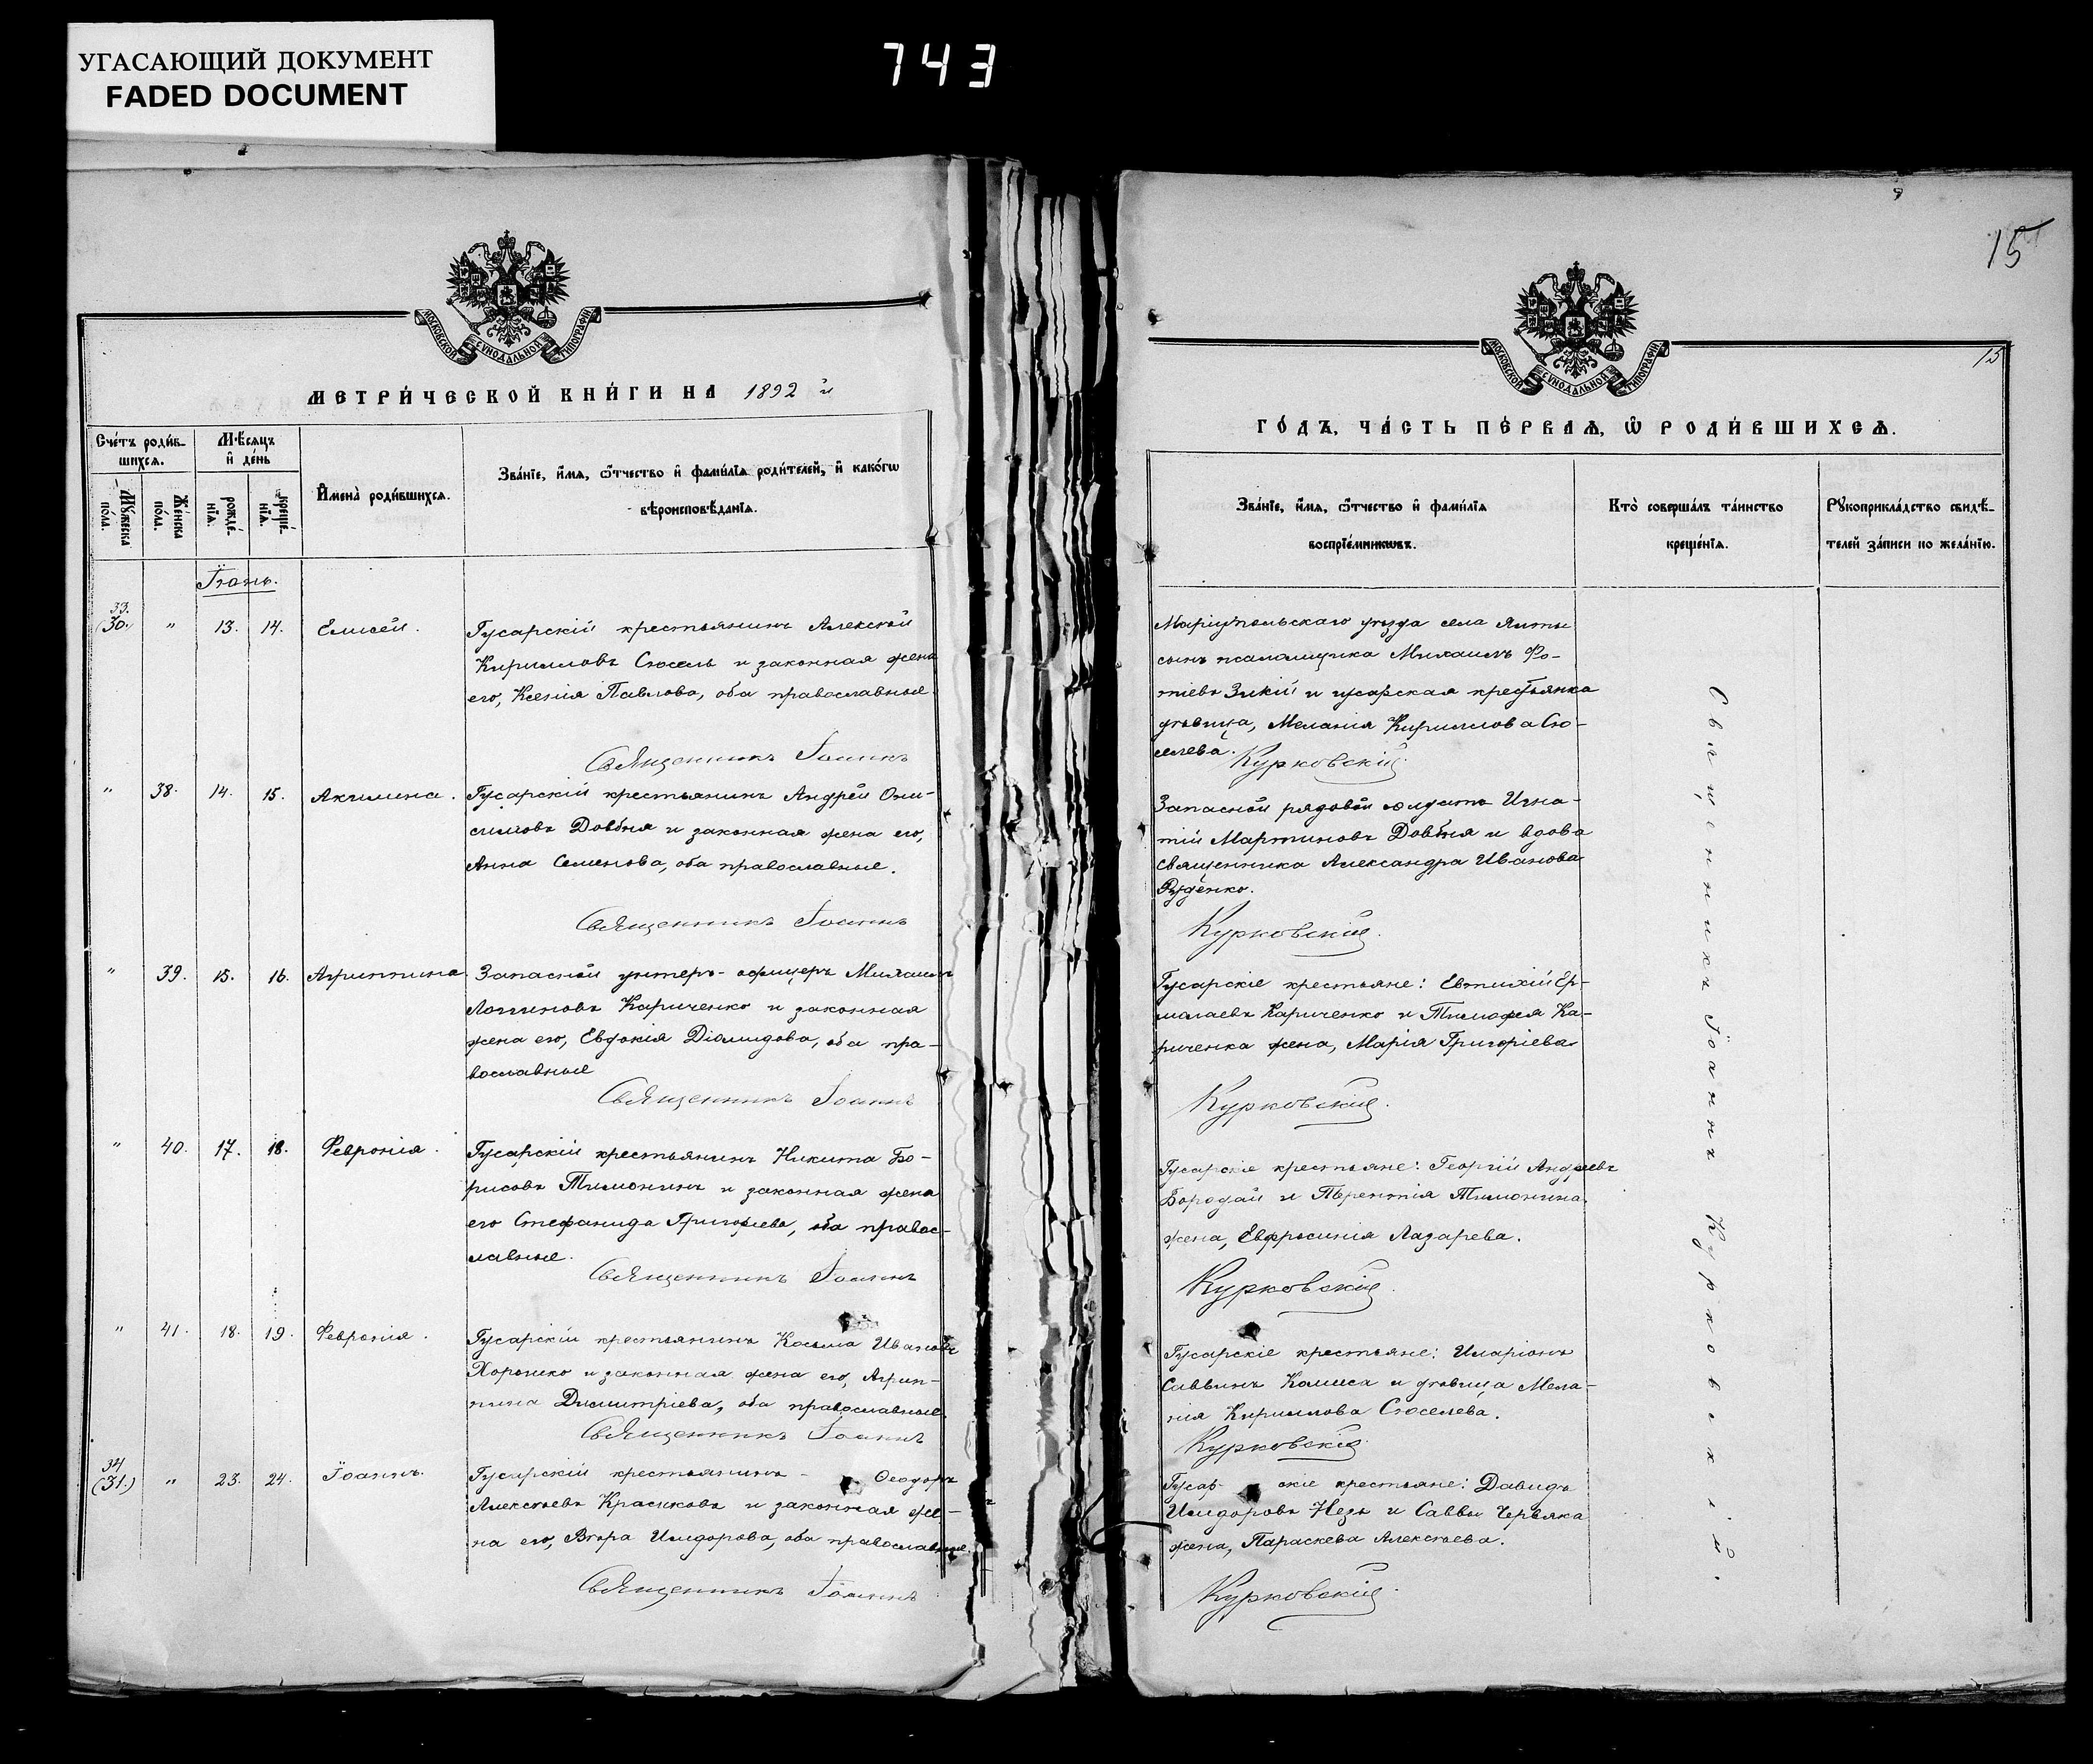 УГАСАЮЩИЙ ДОКУМЕНТ
FADED DOCUMENT
743
МОСКОВСКОЙ СѴНОДАЛЬНОЙ ТИПОГРАФІИ
МЕТРИ́ЧЕСКОЙ КНИ́ГИ НА 1892 й
Сче́тъ роди́в-
шихсѧ.
Мѣ́сѧцъ
и҆ де́нь
И҆мена̀ роди́вшихсѧ.
Зва́нїе, и҆́мѧ, ѻ҆́тчество и҆ фами́лїѧ роди́телей, и҆ како́гѡ
вѣроисповѣ́данїѧ.
Мꙋ́жеска
по́ла.
Же́нска
по́ла.
рожде́-
нїѧ.
креще́-
нїѧ.
Іюнь.
33.
(30.) " 13. 14. Елисей. Гусарскій крестьянинъ Алексѣй
Кирилловъ Сюсель и законная жена
его, Ксенія Павлова, оба православные
Священникъ Іоаннъ
" 38. 14. 15. Акилина. Гусарскій крестьянинъ Андрей Они-
симовъ Довбня и законная жена его,
Анна Семенова, оба православные.
Священникъ Іоаннъ
" 39. 15. 16. Агриппина. Запасной унтеръ-офицеръ Михаилъ
Логгиновъ Кариченко и законная
жена его, Евдокія Діомидова, оба пра-
вославные
Священникъ Іоаннъ
" 40. 17. 18. Февронія. Гусарскій крестьянинъ Никита Бо-
рисовъ Тимонинъ и законная жена
его Стефанида Григорьева, оба правос-
лавные.
Священникъ Іоаннъ
" 41. 18. 19. Февронія. Гусарскій крестьянинъ Косьма Ивановъ
Хорошко и законная жена его, Агрип-
пина Димитріева, оба православные.
Священникъ Іоаннъ
34
(31.) " 23. 24. Іоаннъ. Гусарскій крестьянинъ - Ѳеодоръ
Алексѣевъ Красиковъ и законная же-
на его, Вѣра Исидорова, оба православные.
Священникъ Іоаннъ
15
15
МОСКОВСКОЙ СѴНОДАЛЬНОЙ ТИПОГРАФІИ
ГО́ДЪ, ЧА́СТЬ ПЕ́РВАѦ, Ѡ РОДИ́ВШИХСѦ.
Зва́нїе, и҆́мѧ, ѻ҆́тчество и҆ фами́лїѧ
воспрїе́мникѡвъ.
Кто̀ соверша́лъ та́инство
креще́нїѧ.
Рꙋкоприкла́дство свидѣ́-
телей за́писи по жела́нїю.
Маріупольскаго уѣзда села Ялты
сынъ псаломщика Михаилъ Фо-
тіевъ Зикій и гусарская крестьянка
дѣвица, Меланія Кириллова Сю-
селева.
Курковскій.
Запасной рядовой солдатъ Игна-
тій Мартиновъ Довбня и вдова
священника Александра Иванова
Руденко.
Курковскій.
Гусарскіе крестьяне: Евтихій Ер-
малаевъ Кариченко и Тимофея Ка-
риченка жена, Марія Григоріева
Курковскій.
Гусарскіе крестьяне: Георгій Андреевъ
Бородай и Терентія Тимонина
жена, Евфросинія Лазарева.
Курковскій.
Гусарскіе крестьяне: Иларіонъ
Саввинъ Комиса и дѣвица Мела-
нія Кириллова Сюселева.
Курковскій
Гусар- скіе крестьяне: Давидъ
Исидоровъ Незъ и Саввы Червяка
жена, Параскева Алексѣева.
Курковскій.
Священникъ Іоаннъ Курковскій.